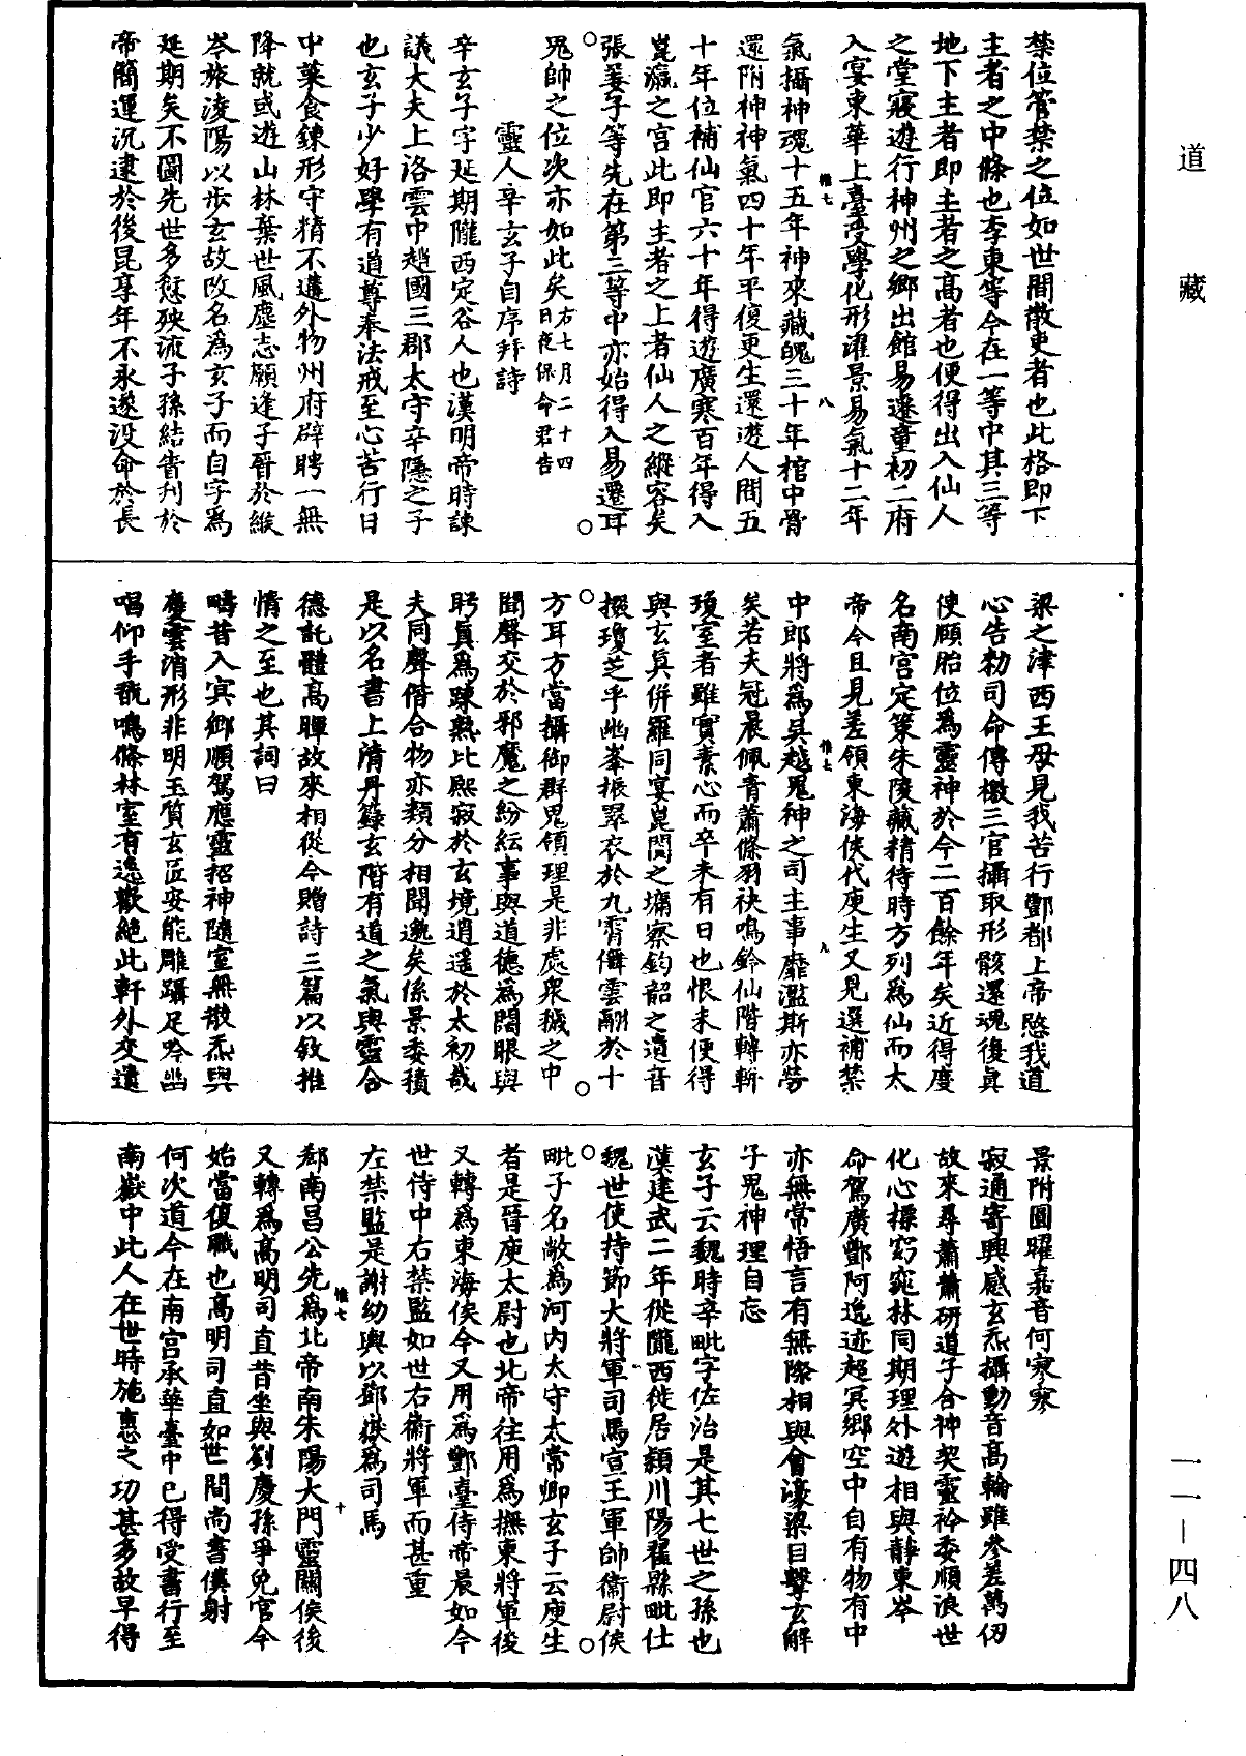 道藏
禁位管禁之位如世間散吏者也此格即下
主者之中條也李東等今在一等中其三等
地下主者即主者之高者也便得出入仙人
之堂寢遊行神州之鄉出館易遷童初二府
入宴東華上臺受學化形濯景易氣十二年
氣攝神魂十五年神來藏魄三十年棺中骨
還附神神氣四十年平復更生還遊人間五
十年位補仙官六十年得遊廣寒百年得入
崑瀛之宮此即主者之上者仙人之縱容矣
張姜子等先在第三等中亦始得入易遷耳
鬼帥之位次亦如此矣右七月二十四日夜保命君告
靈人辛玄子自序并詩
辛玄子字延期隴西定谷人也漢明帝時諫
議大夫上洛雲中趙國三郡太守辛隱之子
也玄子少好學有道尊奉法戒至心苦行日
中菜食鍊形守精不遘外物州府辟聘一無
降就或遊山林棄世風塵志願逢子晉於緱
岑旅淩陽以步玄故改名為玄子而自字為
延期矣不圖先世多愆殃流子孫結眚刋於
帝簡運況逮於後昆享年不永遂没命於長
梁之津西王母見我苦行酆都上帝愍我道
心告勑司命傳檄三官攝取形骸還魂復真
使顧胎位為靈神於今二百餘年矣近得度
名南宮定策朱陵藏精待時方列為仙而太
帝今且見差領東海侯代庾生又見選補禁
中郎將為吳越鬼神之司主事靡濫斯亦勞
矣若夫冠晨佩青蕭條羽袂鳴鈴仙階轉軿
瓊室者雖實素心而卒未有日也恨未便得
與玄真併羅同宴崑閬之墉察鈞韶之遺音
掇瓊芝乎幽峯振翠衣於九霄儛雲翮於十
方耳方當攝御群鬼領理是非處衆穢之中
聞聲交於邪魔之紛紜事與道德為闊眼與
眄真為踈熟比熙寂於玄境逍遥於太初哉
夫同聲偕合物亦類分相聞邈矣係景委積
是以名書上清丹籙玄階有道之氣與靈合
德託體高暉故來相從今贈詩三篇以敘推
情之至也其詞曰
疇昔入冥鄉順駕應靈招神隨空無散炁與
慶雲消形非明玉質玄匠安能雕躡足吟幽
唱仰手翫鳴條林室有逸歡絶此軒外交遺
景附圓曜嘉音何寥寥
寂通寄興感玄炁攝動音高輪雖參差萬仞
故來尋蕭蕭研道子合神契靈衿委順浪世
化心標窈窕林同期理外遊相與静東岑
命駕廣酆阿逸迹超冥鄉空中自有物有中
亦無常悟言有無際相與會濠梁目擊玄解
子鬼神理自忘
玄子云魏時辛毗字佐治是其七世之孫也
漢建武二年從隴西徙居頴川陽翟縣毗仕
魏世使持節大將軍司馬宣王軍師衛尉侯
毗子名敞為河内太守太常卿玄子云庾生
者是晉庾太尉也北帝往用爲撫東將軍後
又轉爲東海侯今又用爲酆臺侍帝晨如今
世侍中右禁監如世右衛將軍而甚重
左禁監是謝幼輿以鄧嶽爲司馬
郗南昌公先爲北帝南朱陽大門靈關侯後
又轉爲高明司直昔坐與劉慶孫爭免官今
始當復職也高明司直如世間尚書僕射
何次道今在南宮承華臺中已得受書行至
南嶽中此人在世時施惠之功甚多故早得
惟七
八
惟七
九
惟七
十
一一—四八